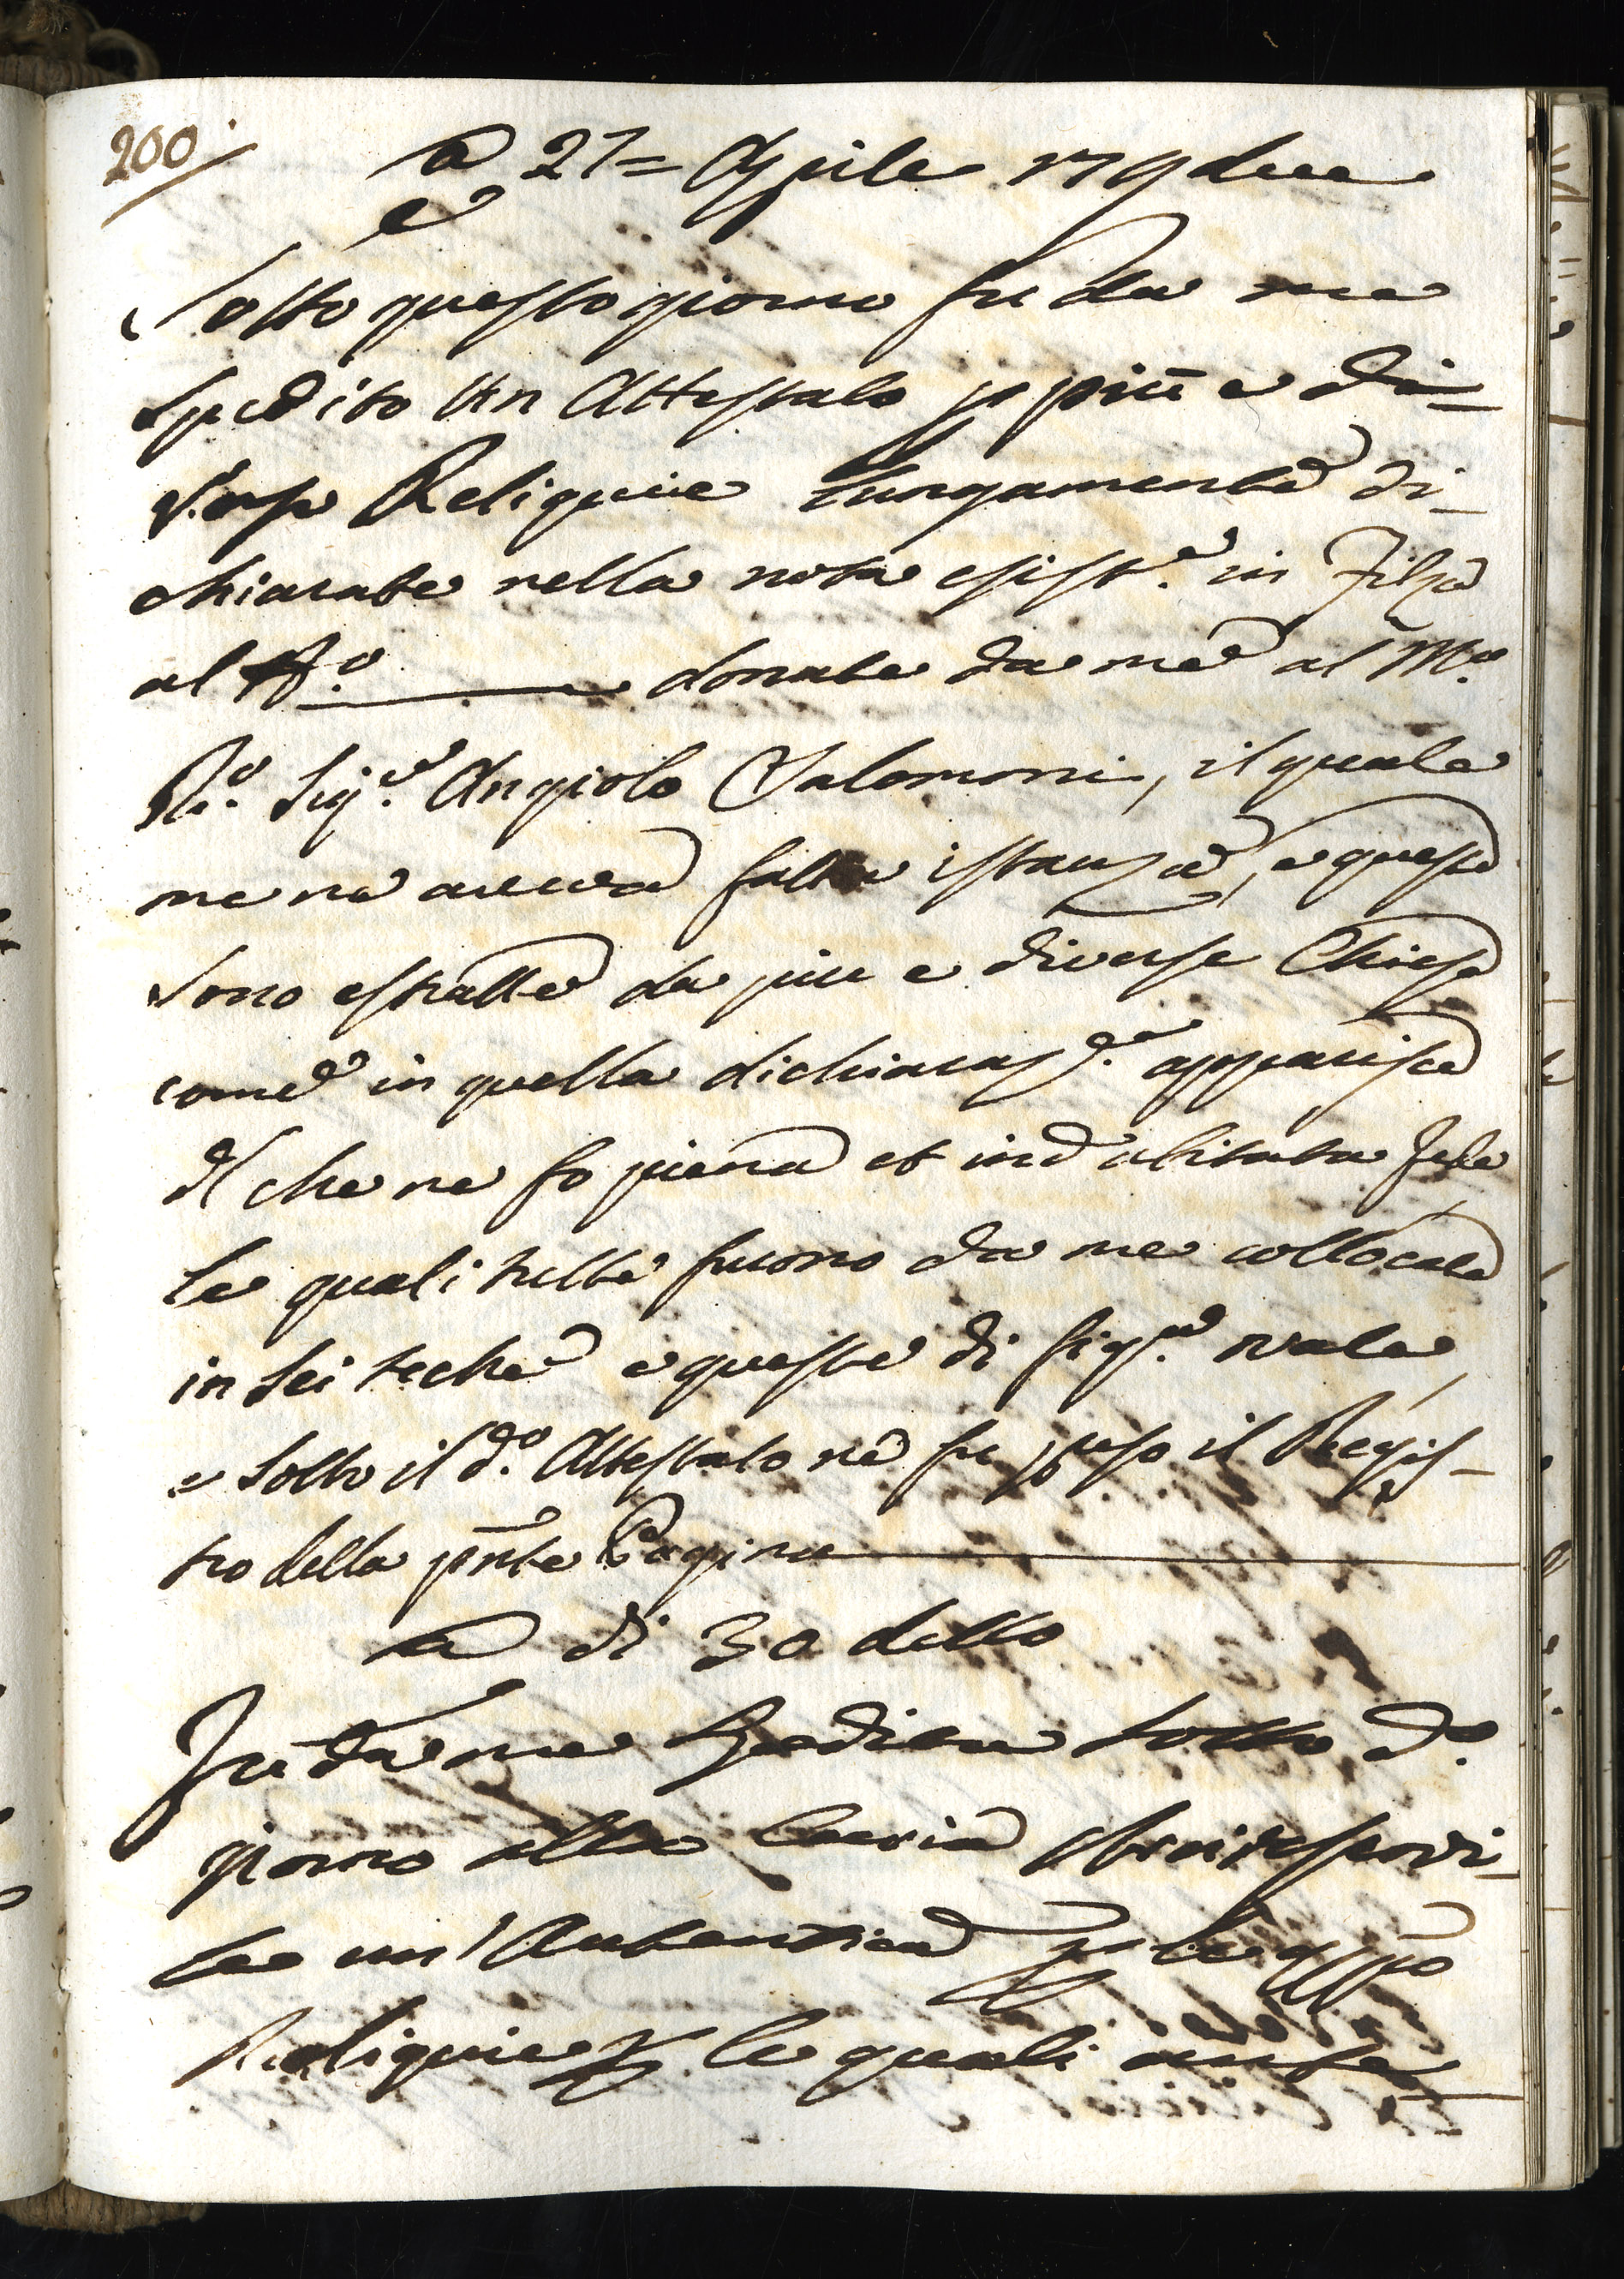 200
a 27= Aprile 179due
Sotto questo giorno fu da me
Spedito Un Attestato p più e di=
verse Reliquie lungamente di-
chiarate nella nota esist.e in Filza
al N.o donate da me al M.o
R.o Sig.e Angiolo Salomoni, il quale
me ne aveva fatta istanza, e queste
Sono estratte da piu e diverse Chiese
come in quella dichiaraz.e apparisce
Il che ne fo piena et indubitata Fede
le quali tutte furono da me collocate
in Sei teche e queste di fig.a ovale,
e Sotto il d.o Attestato ne fu preso il Regis-
tro della pnte Pagina
a di 30 detto
Fu da me Spedita sotto d.o
giorno alla Curia
un' Autentica p le
Reliquie le quali